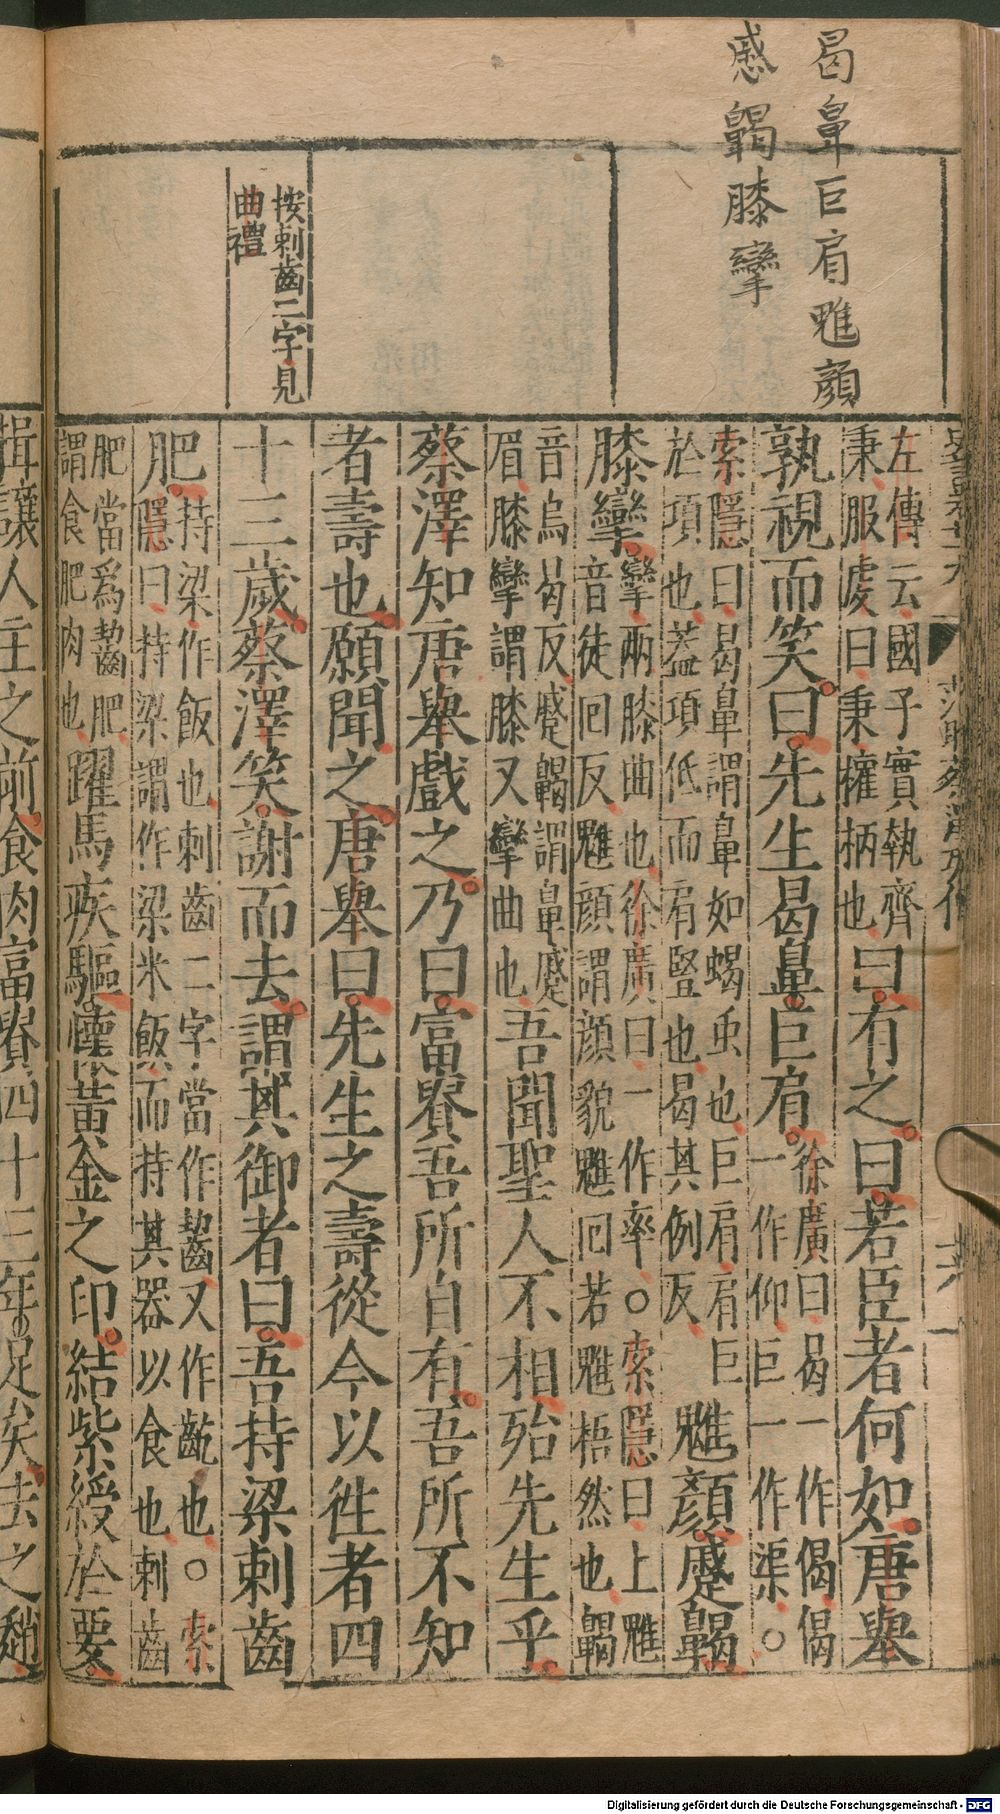 曷鼻巨肩魋顏
蹙齃膝攣
按刺齒二字見
曲禮
左傳云國子實執齊
秉服虔曰秉權柄也
曰有之曰若臣者何如唐舉
孰視而笑曰先生曷鼻巨肩
徐廣曰曷一作偈偈
一作仰巨一作渠○
索隱曰曷鼻謂鼻如蝎虫也巨肩肩巨
於項也蓋項低而肩豎也曷其例反
魋顏蹙齃
膝攣
攣兩膝曲也徐廣曰一作率○索隱曰上魋
音徒回反魋顏謂顏貌魋回若魋梧然也齃
音烏曷反蹙齃謂鼻蹙
眉膝攣謂膝又攣曲也
吾聞聖人不相殆先生乎
蔡澤知唐舉戲之乃曰富貴吾所自有吾所不知
者壽也願聞之唐舉曰先生之壽從今以徃者四
十三歲蔡澤笑謝而去謂其御者曰吾持梁刺齒
肥
持梁作飯也刺齒二字當作齧又作齕也○索
隱曰持梁謂作梁米飯而持其器以食也刺齒
肥當爲齧肥
謂食肥肉也
躍馬疾驅懷黃金之印結紫綬於要
揖讓人主之前食肉富貴四十三年足矣去之趙
Digitalisierung gefördert durch die Deutsche Forschungsgemeinschaft - DFG